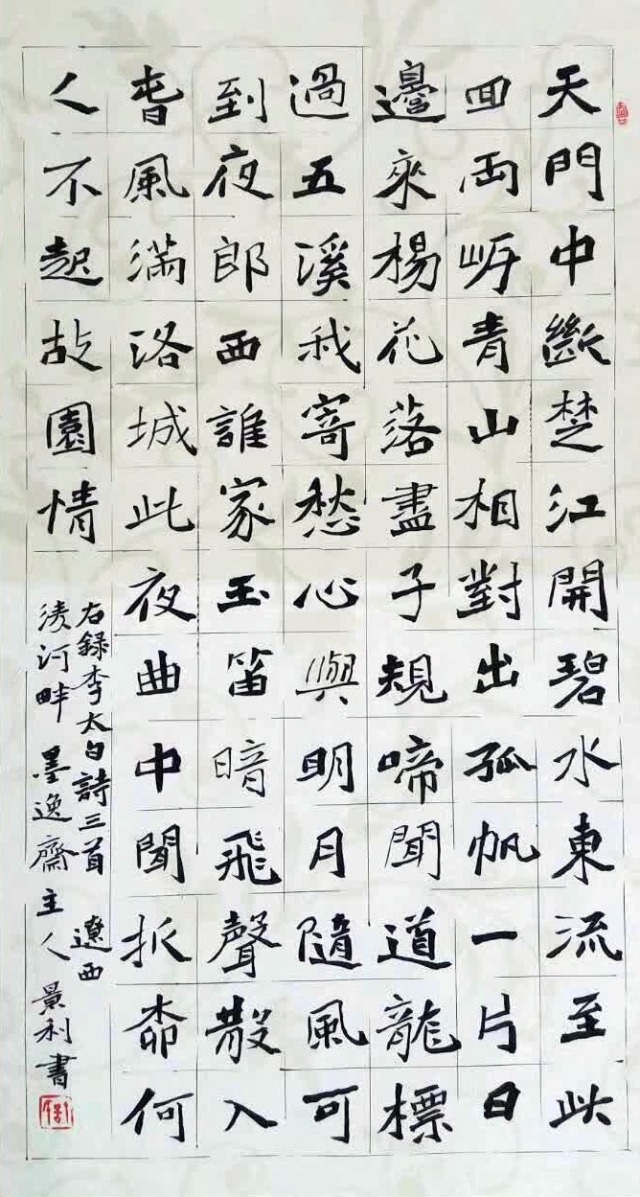 天門中斷楚江開碧水東流至此
囬兩岸青山相對出孤帆一片日
邊來楊花落盡子規啼聞道龍標
過五溪我寄愁心與明月隨風可
到夜郎西誰家玉笛暗飛聲散入
春風滿洛城此夜曲中聞折柳何
人不起故園情
右錄李太白詩三首 遼西
淩河畔 墨逸齋主人景利書